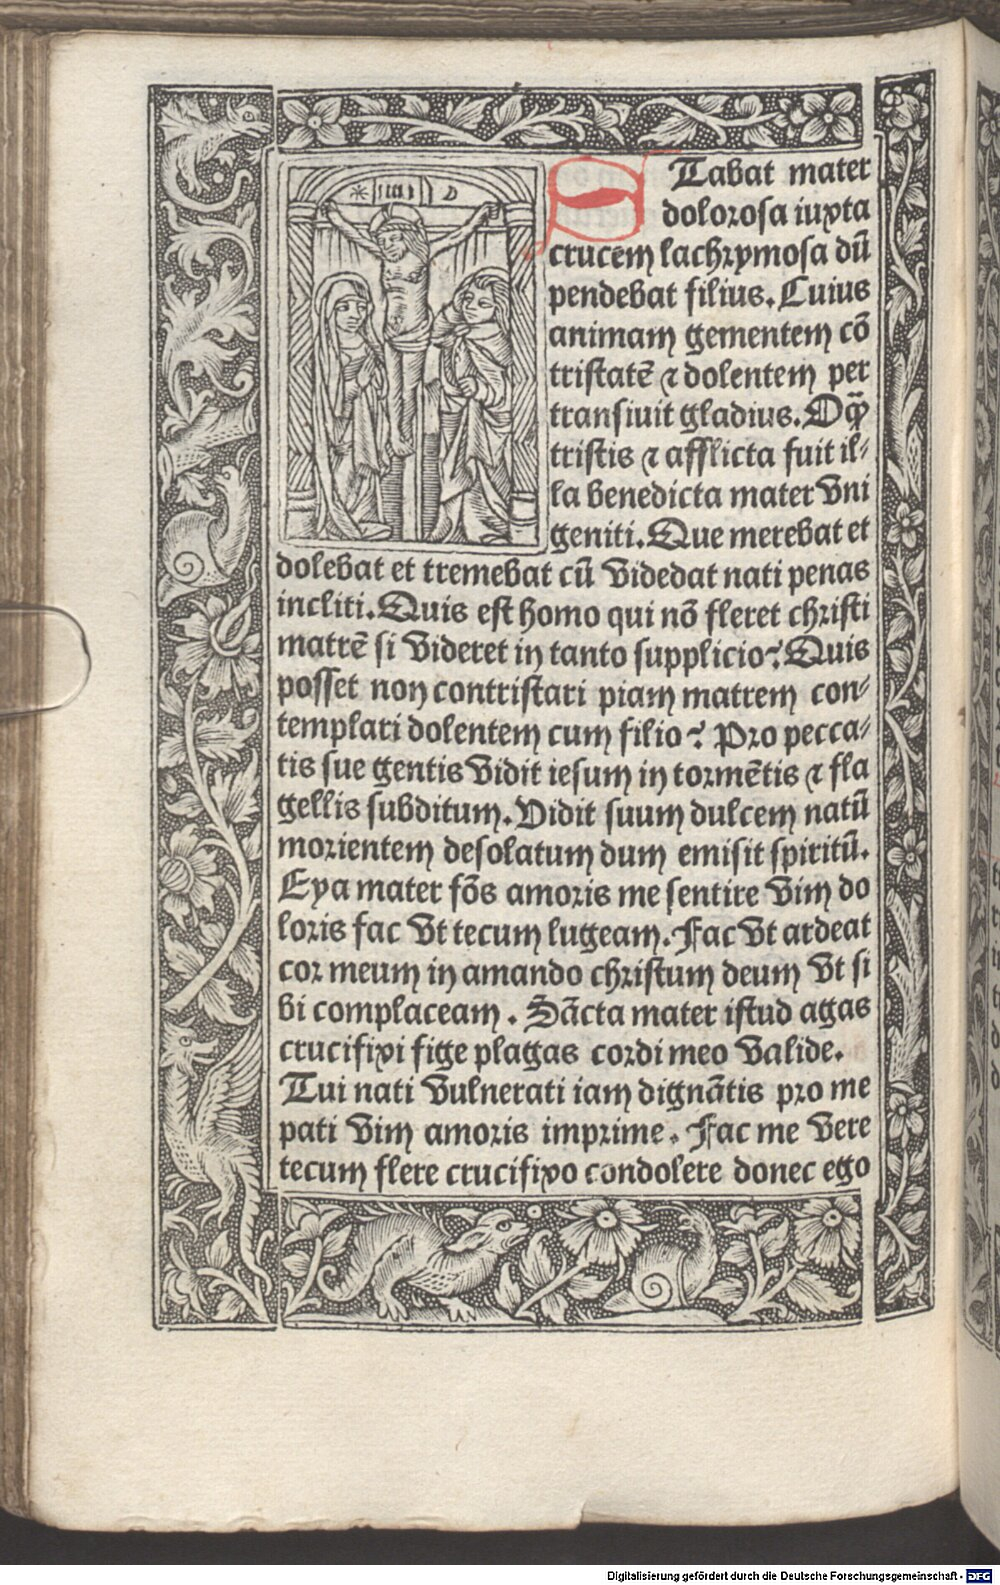 STabat mater
doloꝛosa iuxta
crucem lachꝛymosa dū
pendebat filius. Cuius
animam gementem cō
tristatē ⁊ dolentem per
transiuit gladius. Oꝙ̃
tristis ⁊ afflicta fuit il⸗
la benedicta mater vni
geniti. Que merebat et
dolebat et tremebat cū videdat nati penas
incliti. Quis est homo qui nō fleret chꝛisti
matrē si videret in tanto supplicio? Quis
posset non contristari piam matrem con⸗
templari dolentem cum filio? Pꝛo pecca⸗
tis sue gentis vidit iesum in toꝛmētis ⁊ fla
gellis subditum. Vidit suum dulcem natū
moꝛientem desolatum dum emisit spiritū.
Eya mater fōs amoꝛis me sentire vim do
loꝛis fac vt tecum lugeam. Fac vt ardeat
coꝛ meum in amando chꝛistum deum vt si
bi complaceam. Sācta mater istud agas
crucifixi fige plagas coꝛdi meo valide.
Tui nati vulnerati iam dignātis pꝛo me
pati vim amoꝛis impꝛime. Fac me vere
tecum flere crucifixo condolere donec ego
Digitalisierung gefördert durch die Deutsche Forschungsgemeinschaft - DFG